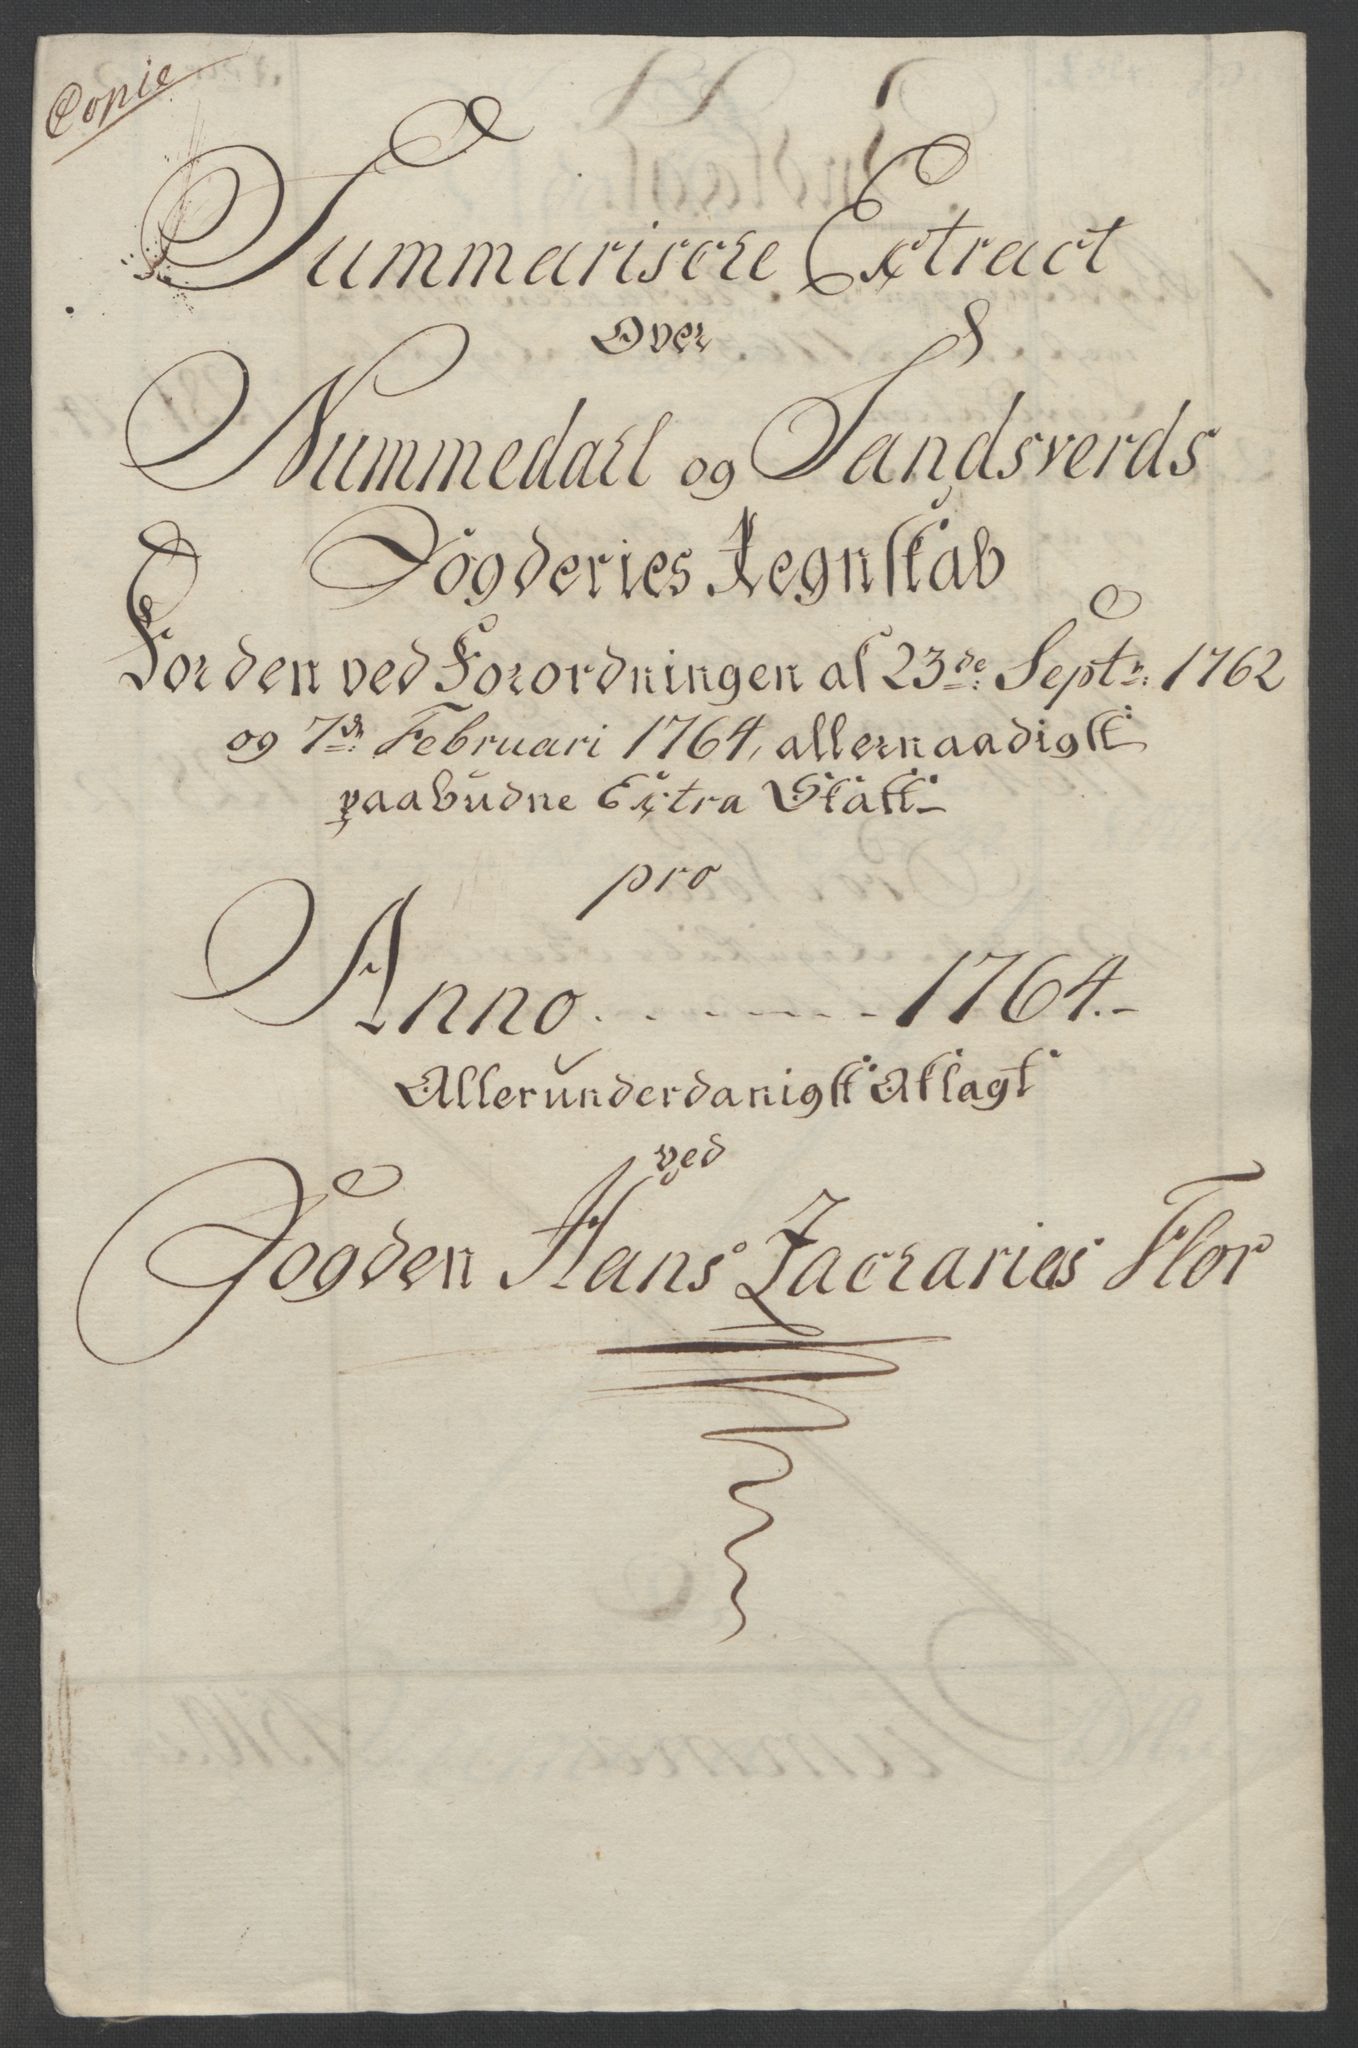 Copie
Summarische Extract
Over
Nummedahl og Sandsverds
Fogderies Regnskab
For den ved Forordningen af 23de Septr: 1762
og 7de Februari 1764, allernaadigst
paabudne Extra Skatt
pro
Anno 1764.
Allerunderdanigst Aflagt
ved
Fogden Hans Zacharies Flor